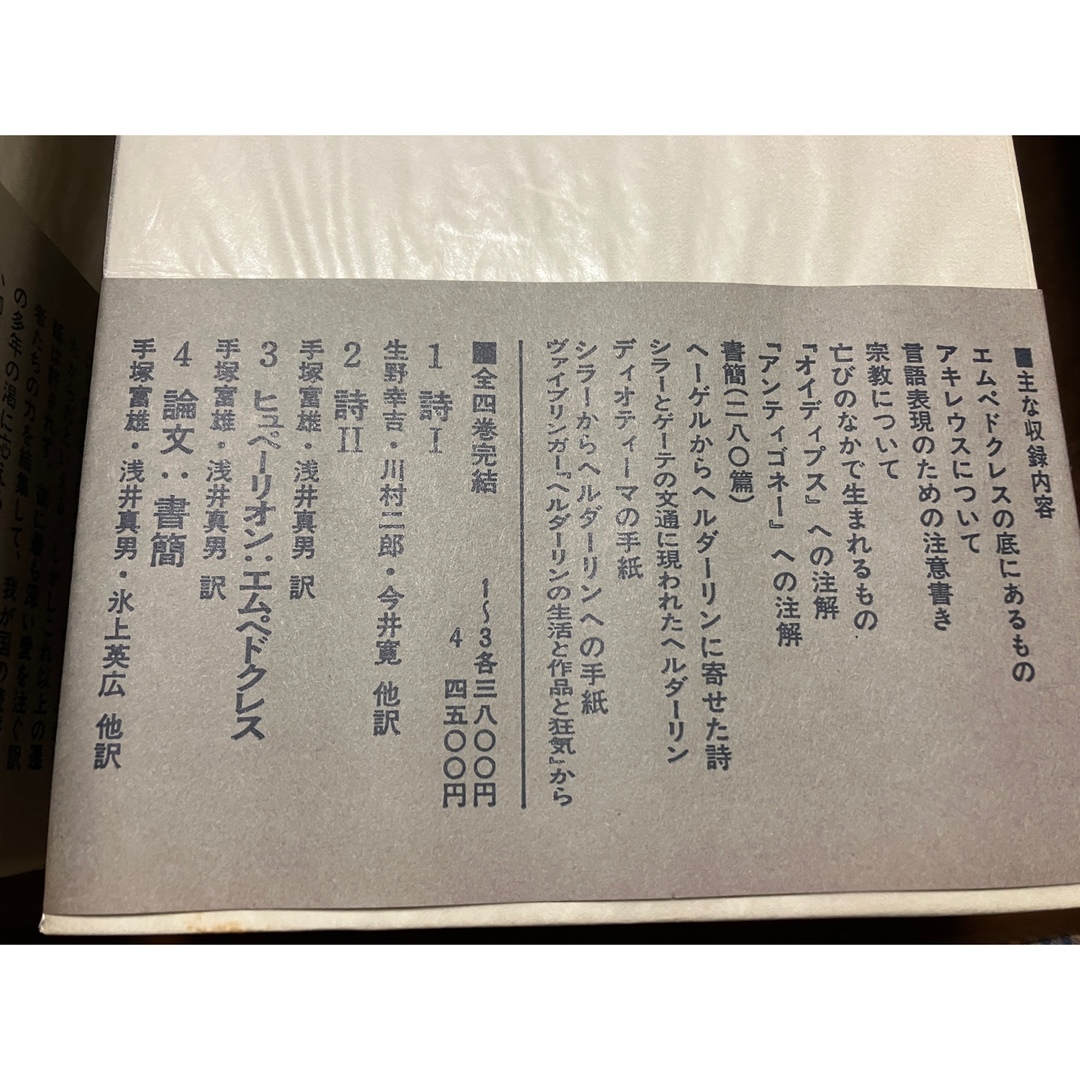 ■主な収録内容
エムペドクレスの底にあるもの
アキレウスについて
言語表現のための注意書き
宗教について
亡びのなかで生まれるもの
『オイディプス』への注解
『アンティゴネー』への注解
書簡(二八〇篇)
ヘーゲルからヘルダーリンに寄せた詩
シラーとゲーテの文通に現われたヘルダーリン
ディオティーマの手紙
シラーからヘルダーリンへの手紙
ヴァイブリンガー『ヘルダーリンの生活と作品と狂気』から
■全四巻完結 1〜3各三八〇〇円
4 四五〇〇円
1 詩Ⅰ
生野幸吉・川村二郎・今井寛 他訳
2 詩Ⅱ
手塚富雄・浅井真男 訳
3 ヒュペーリオン:エムペドクレス
手塚富雄・浅井真男 訳
4 論文:書簡
手塚富雄・浅井真男・氷上英広 他訳
者たちの力を結集して、我が国の
の多年の渇に